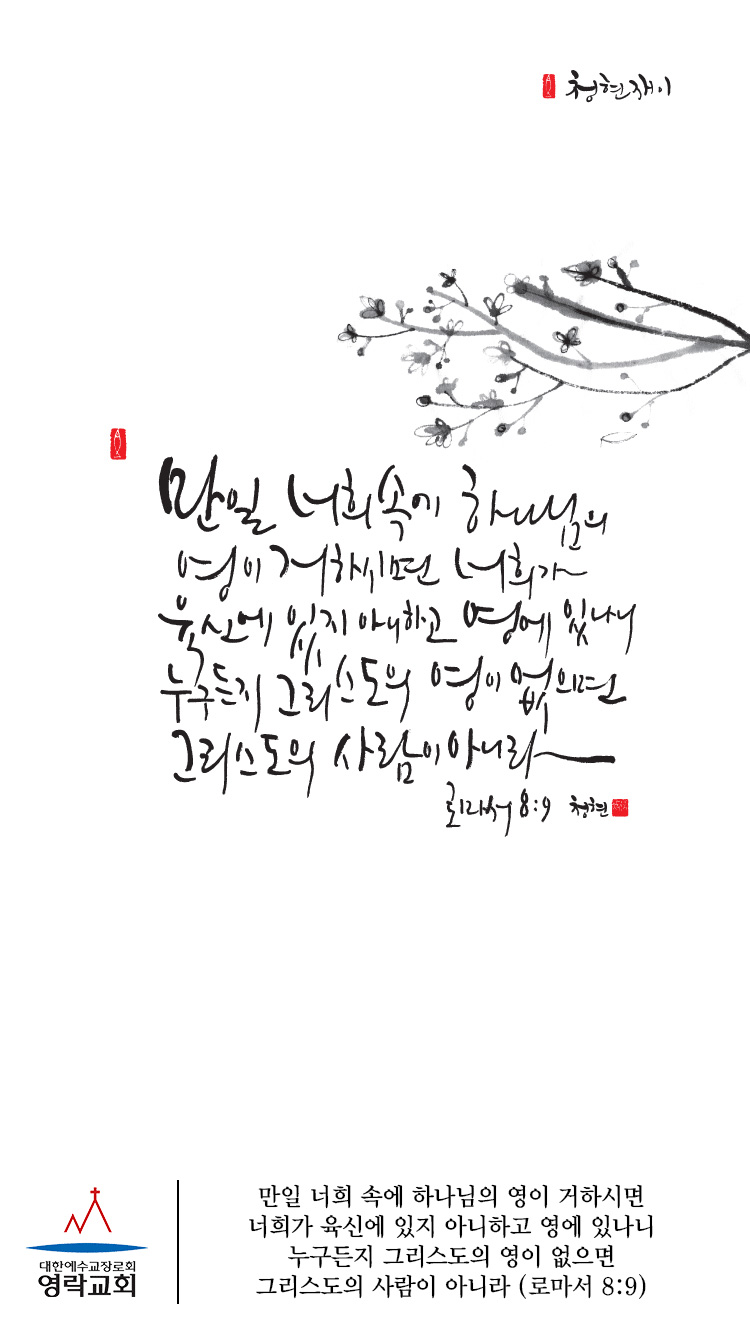 청현재이
만일 너희 속에 하나님의
영이 거하시면 너희가
육신에 있지 아니하고 영에 있나니
누구든지 그리스도의 영이 없으면
그리스도의 사람이 아니라
로마서 8:9 청현
대한예수교장로회
영락교회
만일 너희 속에 하나님의 영이 거하시면
너희가 육신에 있지 아니하고 영에 있나니
누구든지 그리스도의 영이 없으면
그리스도의 사람이 아니라 (로마서 8:9)